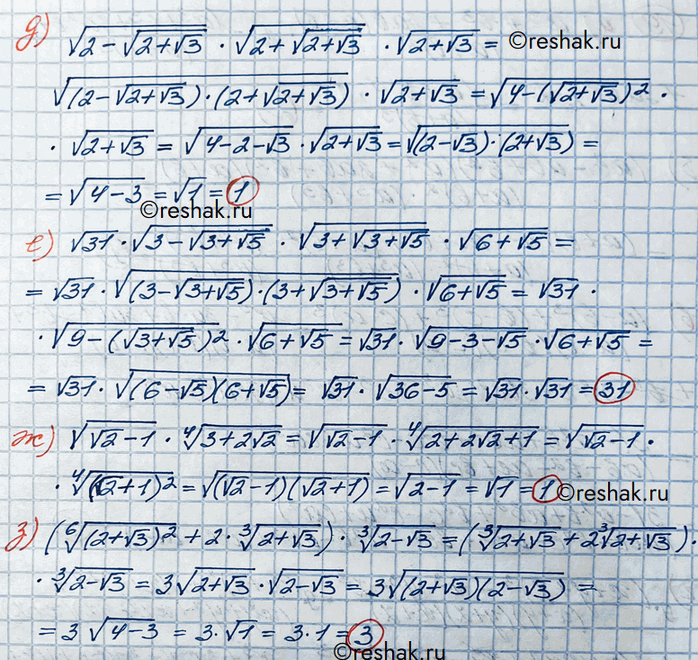 д) √(2-√(2+√3)) · √(2+√(2+√3)) · √(2+√3) = ©reshak.ru
√((2-√(2+√3))·(2+√(2+√3))) · √(2+√3) = √(4-(√(2+√3))² ·
· √(2+√3) = √(4-2-√3) · √(2+√3) = √((2-√3)·(2+√3)) =
= √(4-3) = √1 = 1
©reshak.ru
е) √31 · √(3-√(3+√5)) · √(3+√(3+√5)) · √(6+√5) =
= √31 · √((3-√(3+√5))·(3+√(3+√5))) · √(6+√5) = √31 ·
· √(9-(√(3+√5))²) · √(6+√5) = √31 · √(9-3-√5) · √(6+√5) =
= √31 · √((6-√5)(6+√5)) = √31 · √(36-5) = √31 · √31 = 31
ж) √(√2-1) · ⁴√(3+2√2) = √(√2-1) · ⁴√(2+2√2+1) = √(√2-1) ·
· ⁴√((√2+1)²) = √((√2-1)(√2+1)) = √(2-1) = √1 = 1 ©reshak.ru
з) (⁶√((2+√3)²) + 2·³√(2+√3)) · ³√(2-√3) = (³√(2+√3) + 2³√(2+√3)) ·
· ³√(2-√3) = 3√(2+√3) · √(2-√3) = 3√((2+√3)(2-√3)) =
= 3√(4-3) = 3·√1 = 3·1 = 3
©reshak.ru